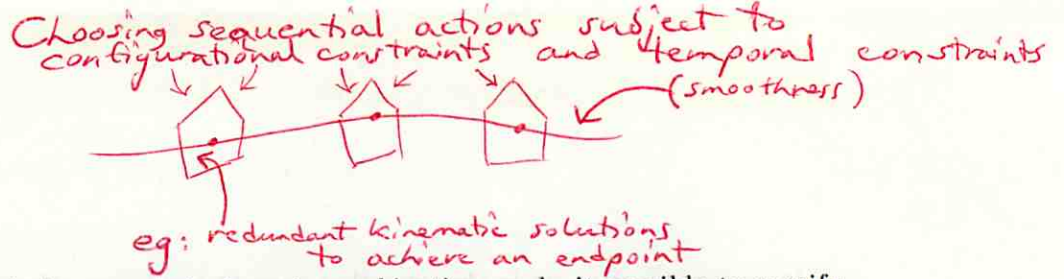 Choosing sequential actions subject to
configurational constraints and temporal constraints
(smoothness)
eg: redundant kinematic solutions
to achieve an endpoint